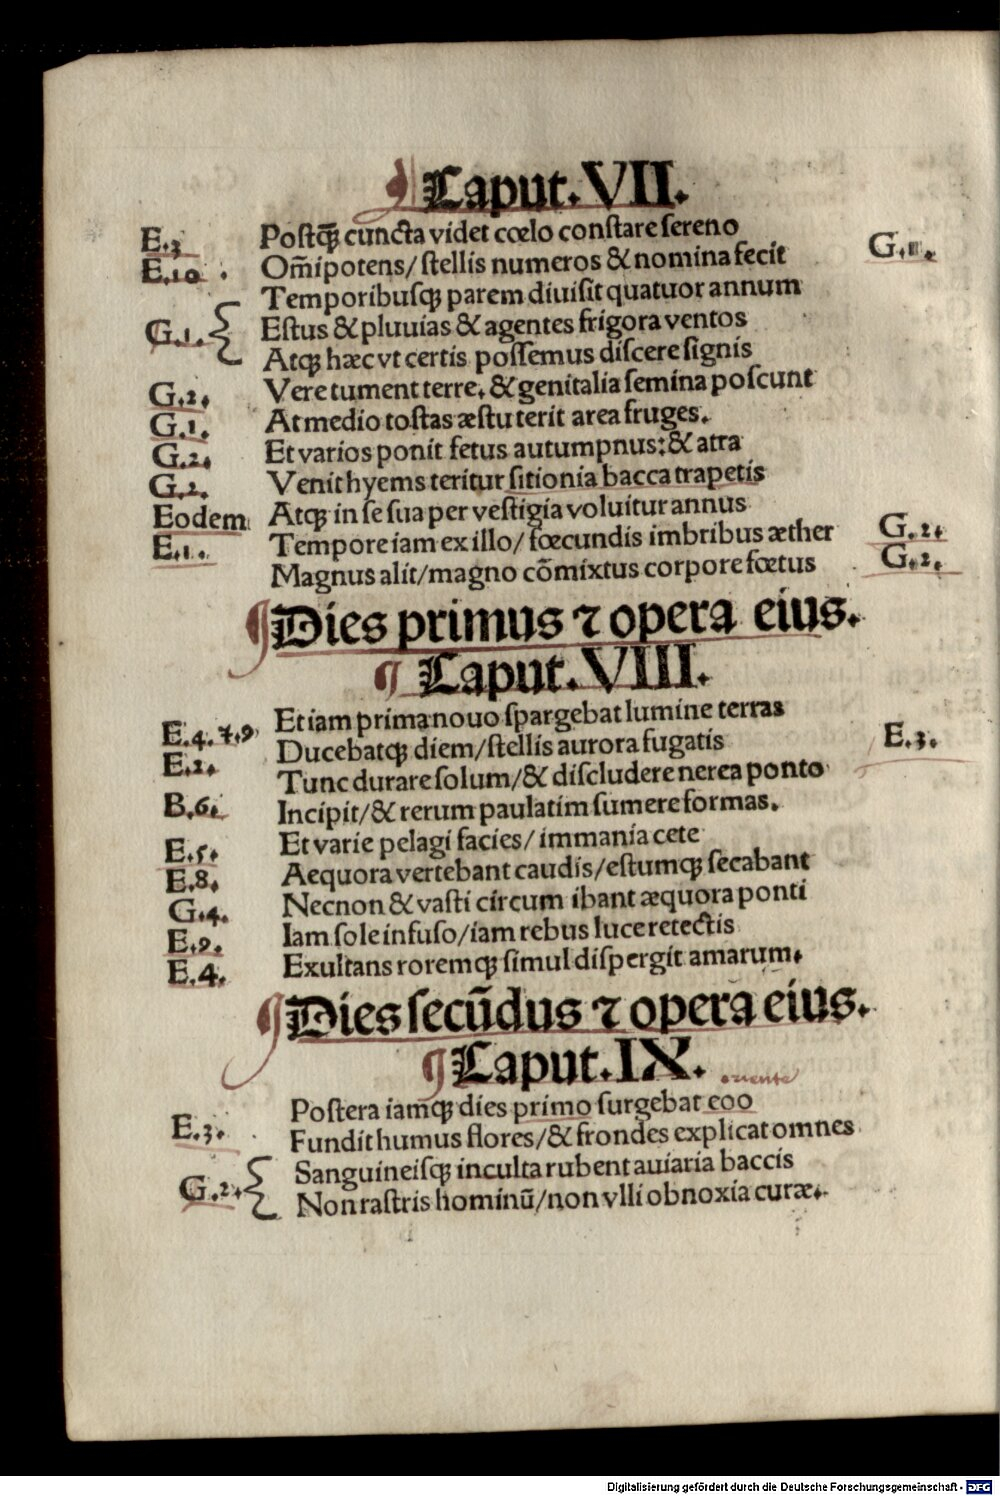 ¶ Caput. VII.
E.3 Postq̄ȝ cuncta videt cœlo constare sereno
E.10. Om̄ipotens/ stellis numeros & nomina fecit G.II.
Temporibusqȝ parem diuisit quatuor annum
G.1. Estus & pluuias & agentes frigora ventos
Atqȝ hæc vt certis possemus discere signis
G.2. Vere tument terre. & genitalia semina poscunt
G.1. At medio tostas æstu terit area fruges.
G.2. Et varios ponit fetus autumpnus: & atra
G.2. Venit hyems teritur sitionia bacca trapetis
Eodem Atqȝ in se sua per vestigia voluitur annus
E.1. Tempore iam ex illo/ fœcundis imbribus æther G.2.
Magnus alit/ magno cōmixtus corpore fœtus G.2.
¶ Dies primus ⁊ opera eius.
¶ Caput. VIII.
E.4.7.9 Et iam prima nouo spargebat lumine terras
E.2. Ducebatqȝ diem/ stellis aurora fugatis E.3.
Tunc durare solum/ & discludere nerea ponto
B.6. Incipit/ & rerum paulatim sumere formas.
E.5. Et varie pelagi facies/ immania cete
E.8. Aequora vertebant caudis/ estumqȝ secabant
G.4. Necnon & vasti circum ibant æquora ponti
E.9. Iam sole infuso/ iam rebus luce retectis
E.4. Exultans roremqȝ simul dispergit amarum.
¶ Dies secūdus ⁊ opera eius.
¶ Caput. IX.
oriente
Postera iamqȝ dies primo surgebat eoo
E.3. Fundit humus flores/ & frondes explicat omnes
Sanguineisqȝ inculta rubent auiaria baccis
G.2. Non rastris hominū/ non vlli obnoxia curæ.
Digitalisierung gefördert durch die Deutsche Forschungsgemeinschaft - DFG